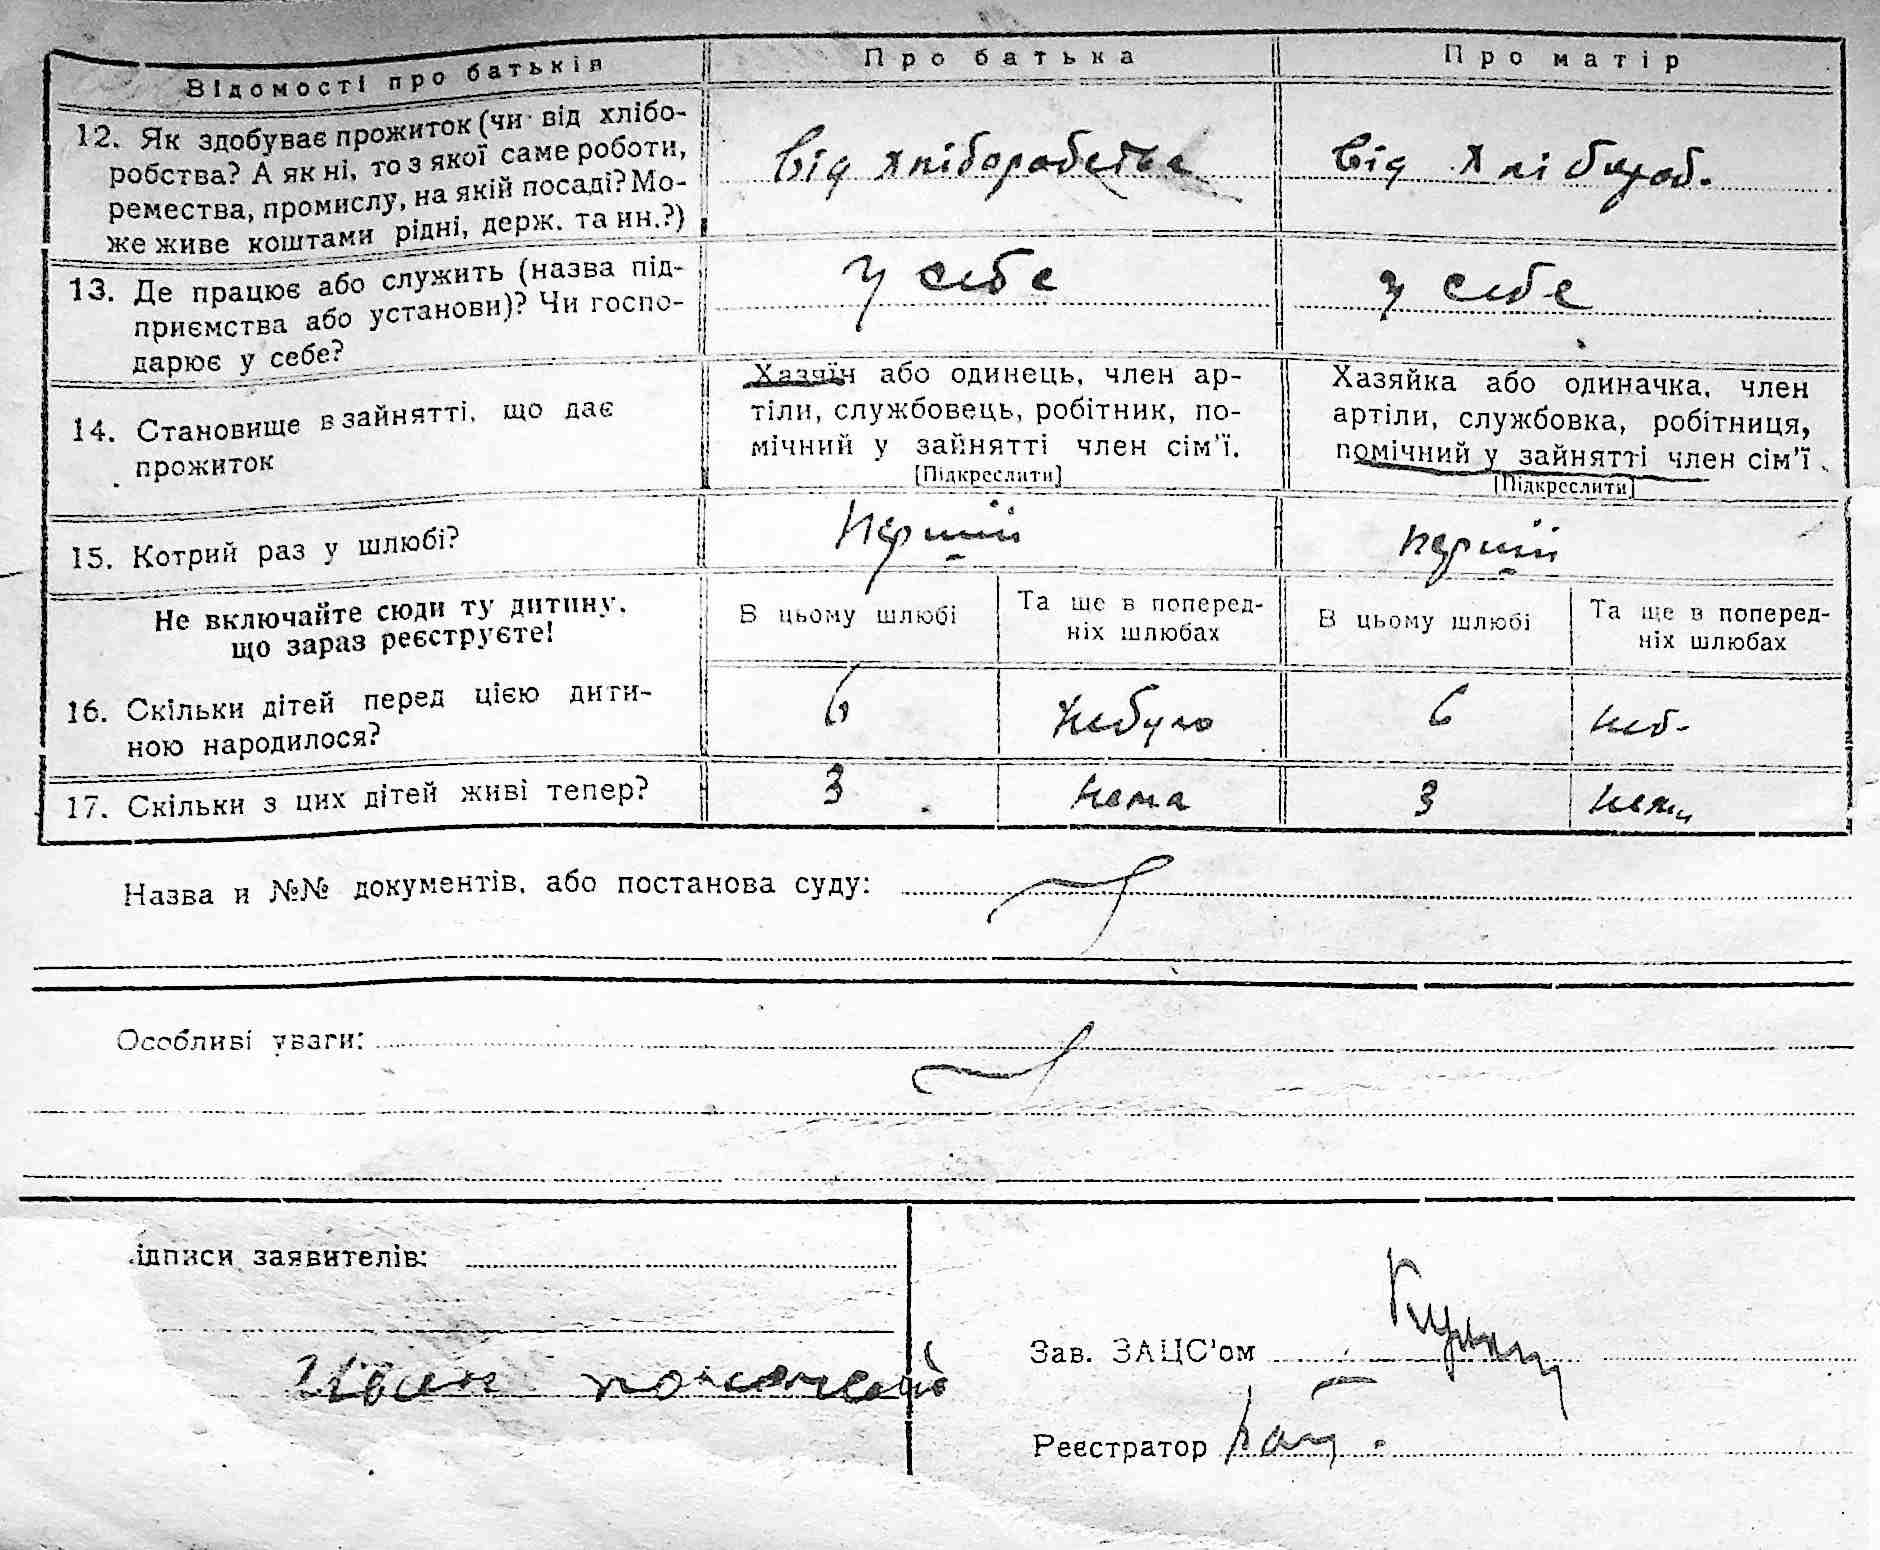 Відомості про батьків
Про батька
Про матір
12. Як здобуває прожиток (чи від хлібо-
робства? А як ні, то з якої саме роботи,
ремества, промислу, на якій посаді? Мо-
же живе коштами рідні, держ. та ин.?)
від хліборобства
від хлібороб.
13. Де працює або служить (назва під-
приємства або установи)? Чи госпо-
дарює у себе?
у себе
у себе
14. Становище в зайнятті, що дає
прожиток
Хазяїн або одинець, член ар-
тіли, службовець, робітник, по-
мічний у зайнятті член сім'ї.
[Підкреслити]
Хазяйка або одиначка, член
артіли, службовка, робітниця,
помічний у зайнятті член сім'ї.
[Підкреслити]
15. Котрий раз у шлюбі?
перший
перший
Не включайте сюди ту дитину,
що зараз реєструєте!
В цьому шлюбі
Та ще в поперед-
ніх шлюбах
В цьому шлюбі
Та ще в поперед-
ніх шлюбах
16. Скільки дітей перед цією дити-
ною народилося?
6
небуло
6
неб.
17. Скільки з цих дітей живі тепер?
3
нема
3
нема
Назва и №№ документів, або постанова суду:
Особливі уваги:
ідписи заявителів:
Иван
Зав. ЗАЦС'ом
Реєстратор